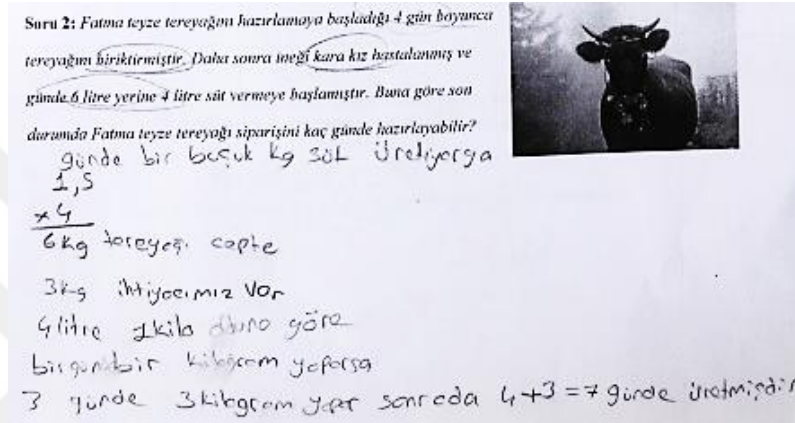 Soru 2: Fatma teyze tereyağını hazırlamaya başladığı 4 gün boyunca
tereyağını biriktirmiştir. Daha sonra ineği kara kız hastalanmış ve
günde 6 litre yerine 4 litre süt vermeye başlamıştır. Buna göre son
durumda Fatma teyze tereyağı siparişini kaç günde hazırlayabilir?
günde bir buçuk kg süt üretiyorsa
1,5
x4
6kg tereyağı cepte
3kg ihtiyacımız var
4 litre 1kilo göre
bir kilogram yaparsa
3 günde 3kilogram yapar sonrada 4+3=7 günde üretmişdir